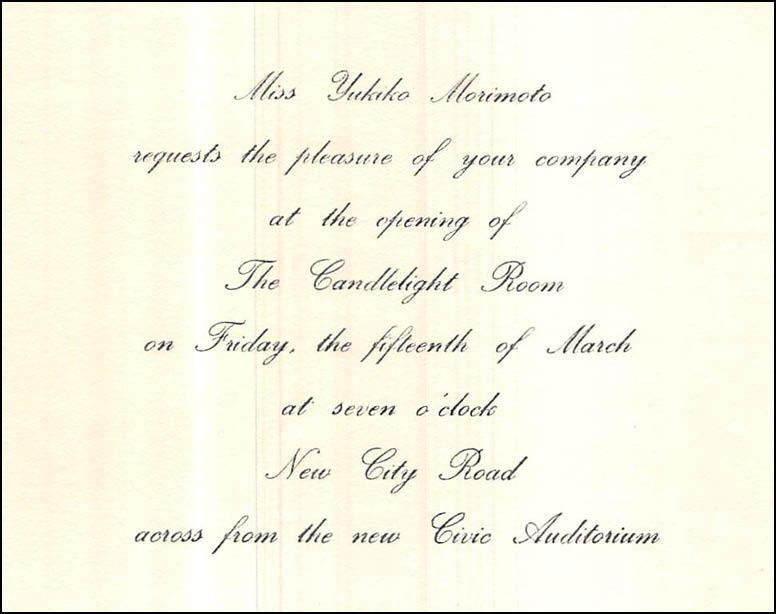 Miss Yukiko Morimoto
requests the pleasure of your company
at the opening of
The Candlelight Room
on Friday, the fifteenth of March
at seven o'clock
New City Road
across from the new Civic Auditorium